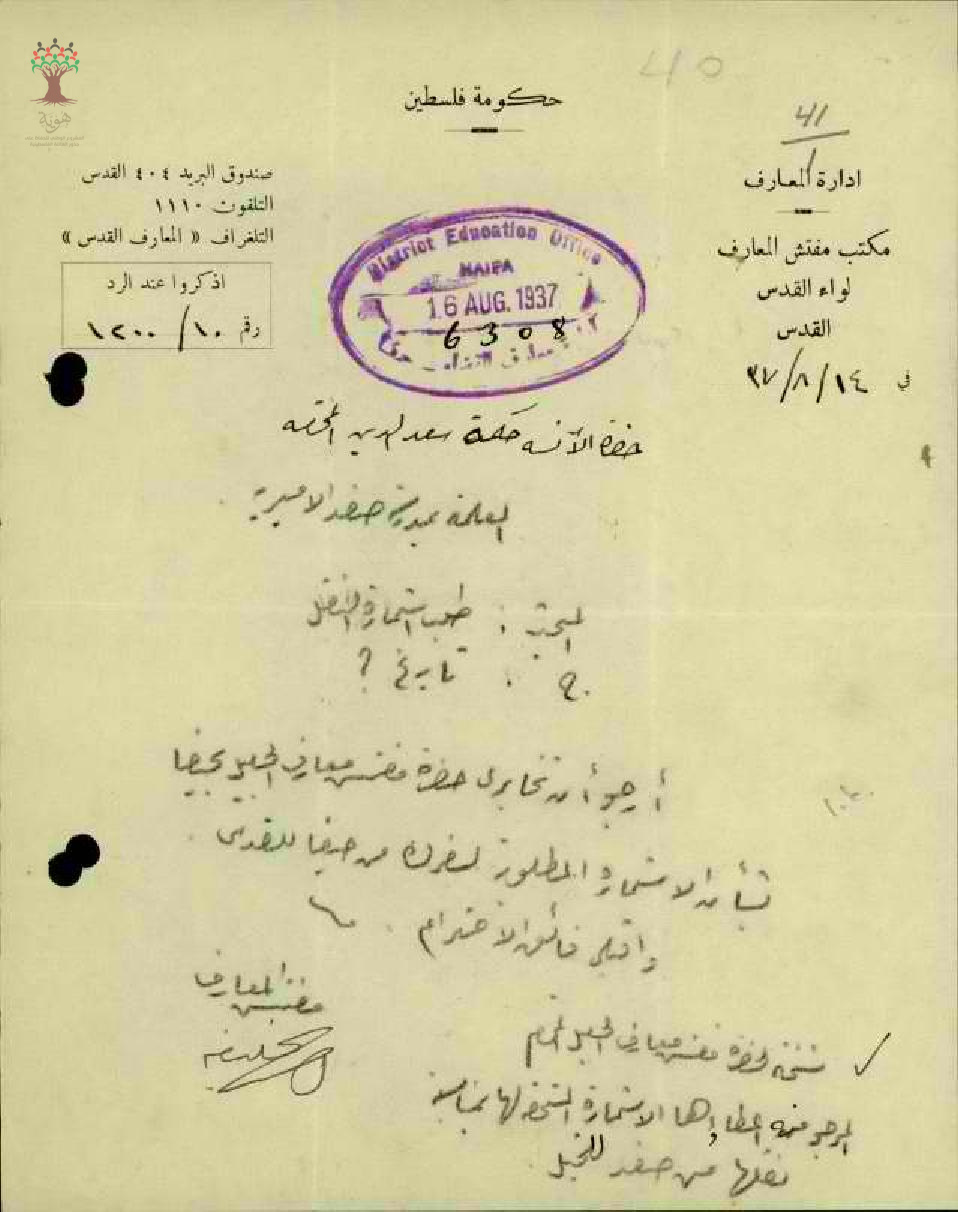 هوية
40
حكومة فلسطين
41
ادارة المعارف
مكتب مفتش المعارف
لواء القدس
القدس
في ١٤/٨/٣٧
صندوق البريد ٤٠٤ القدس
التلفون ١١١٠
التلغراف « المعارف القدس »
اذكروا عند الرد
رقم ١٠/١٢٠٠
District Education Office
HAIFA
16 AUG. 1937
6308
حضرة الآنسه حكمة سعد الدين المحترمه
المعلمة بمدرسة صفد الاميرية .
المبحث : طلب استمارة النقل
تاريخ ؟
أرجو أن تخابري حضرة مفتش معارف الجليل بحيفا
بشأن الاستمارة المطلوبة لسفرك من حيفا للقدس .
واقبلي فائق الاحترام .
مفتش المعارف
نسخة لحضرة مفتش معارف الجليل المحترم
المرجو منه اعطاءها الاستمارة المستحق لها بمناسبة
نقلها من صفد للخليل .